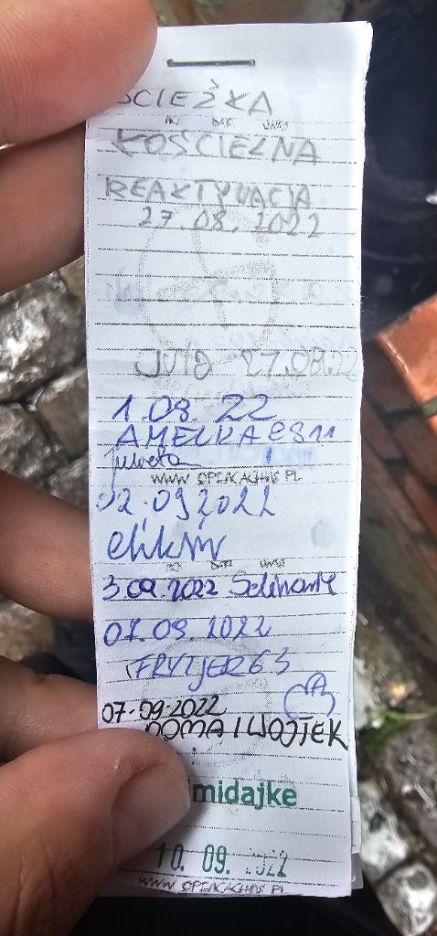 ŚCIEŻKA
KOŚCIELNA
REAKTYWACJA
27.08.2022
27.08.22
1.09.22
AMELKA2811
WWW OPENCACHING PL
02.09.2022
3 09.2022
07.09.2022
FRYTJER63
07.09.2022
DOMA I WOJTEK
midajke
10. 09. 2022
WWW OPENCACHING PL